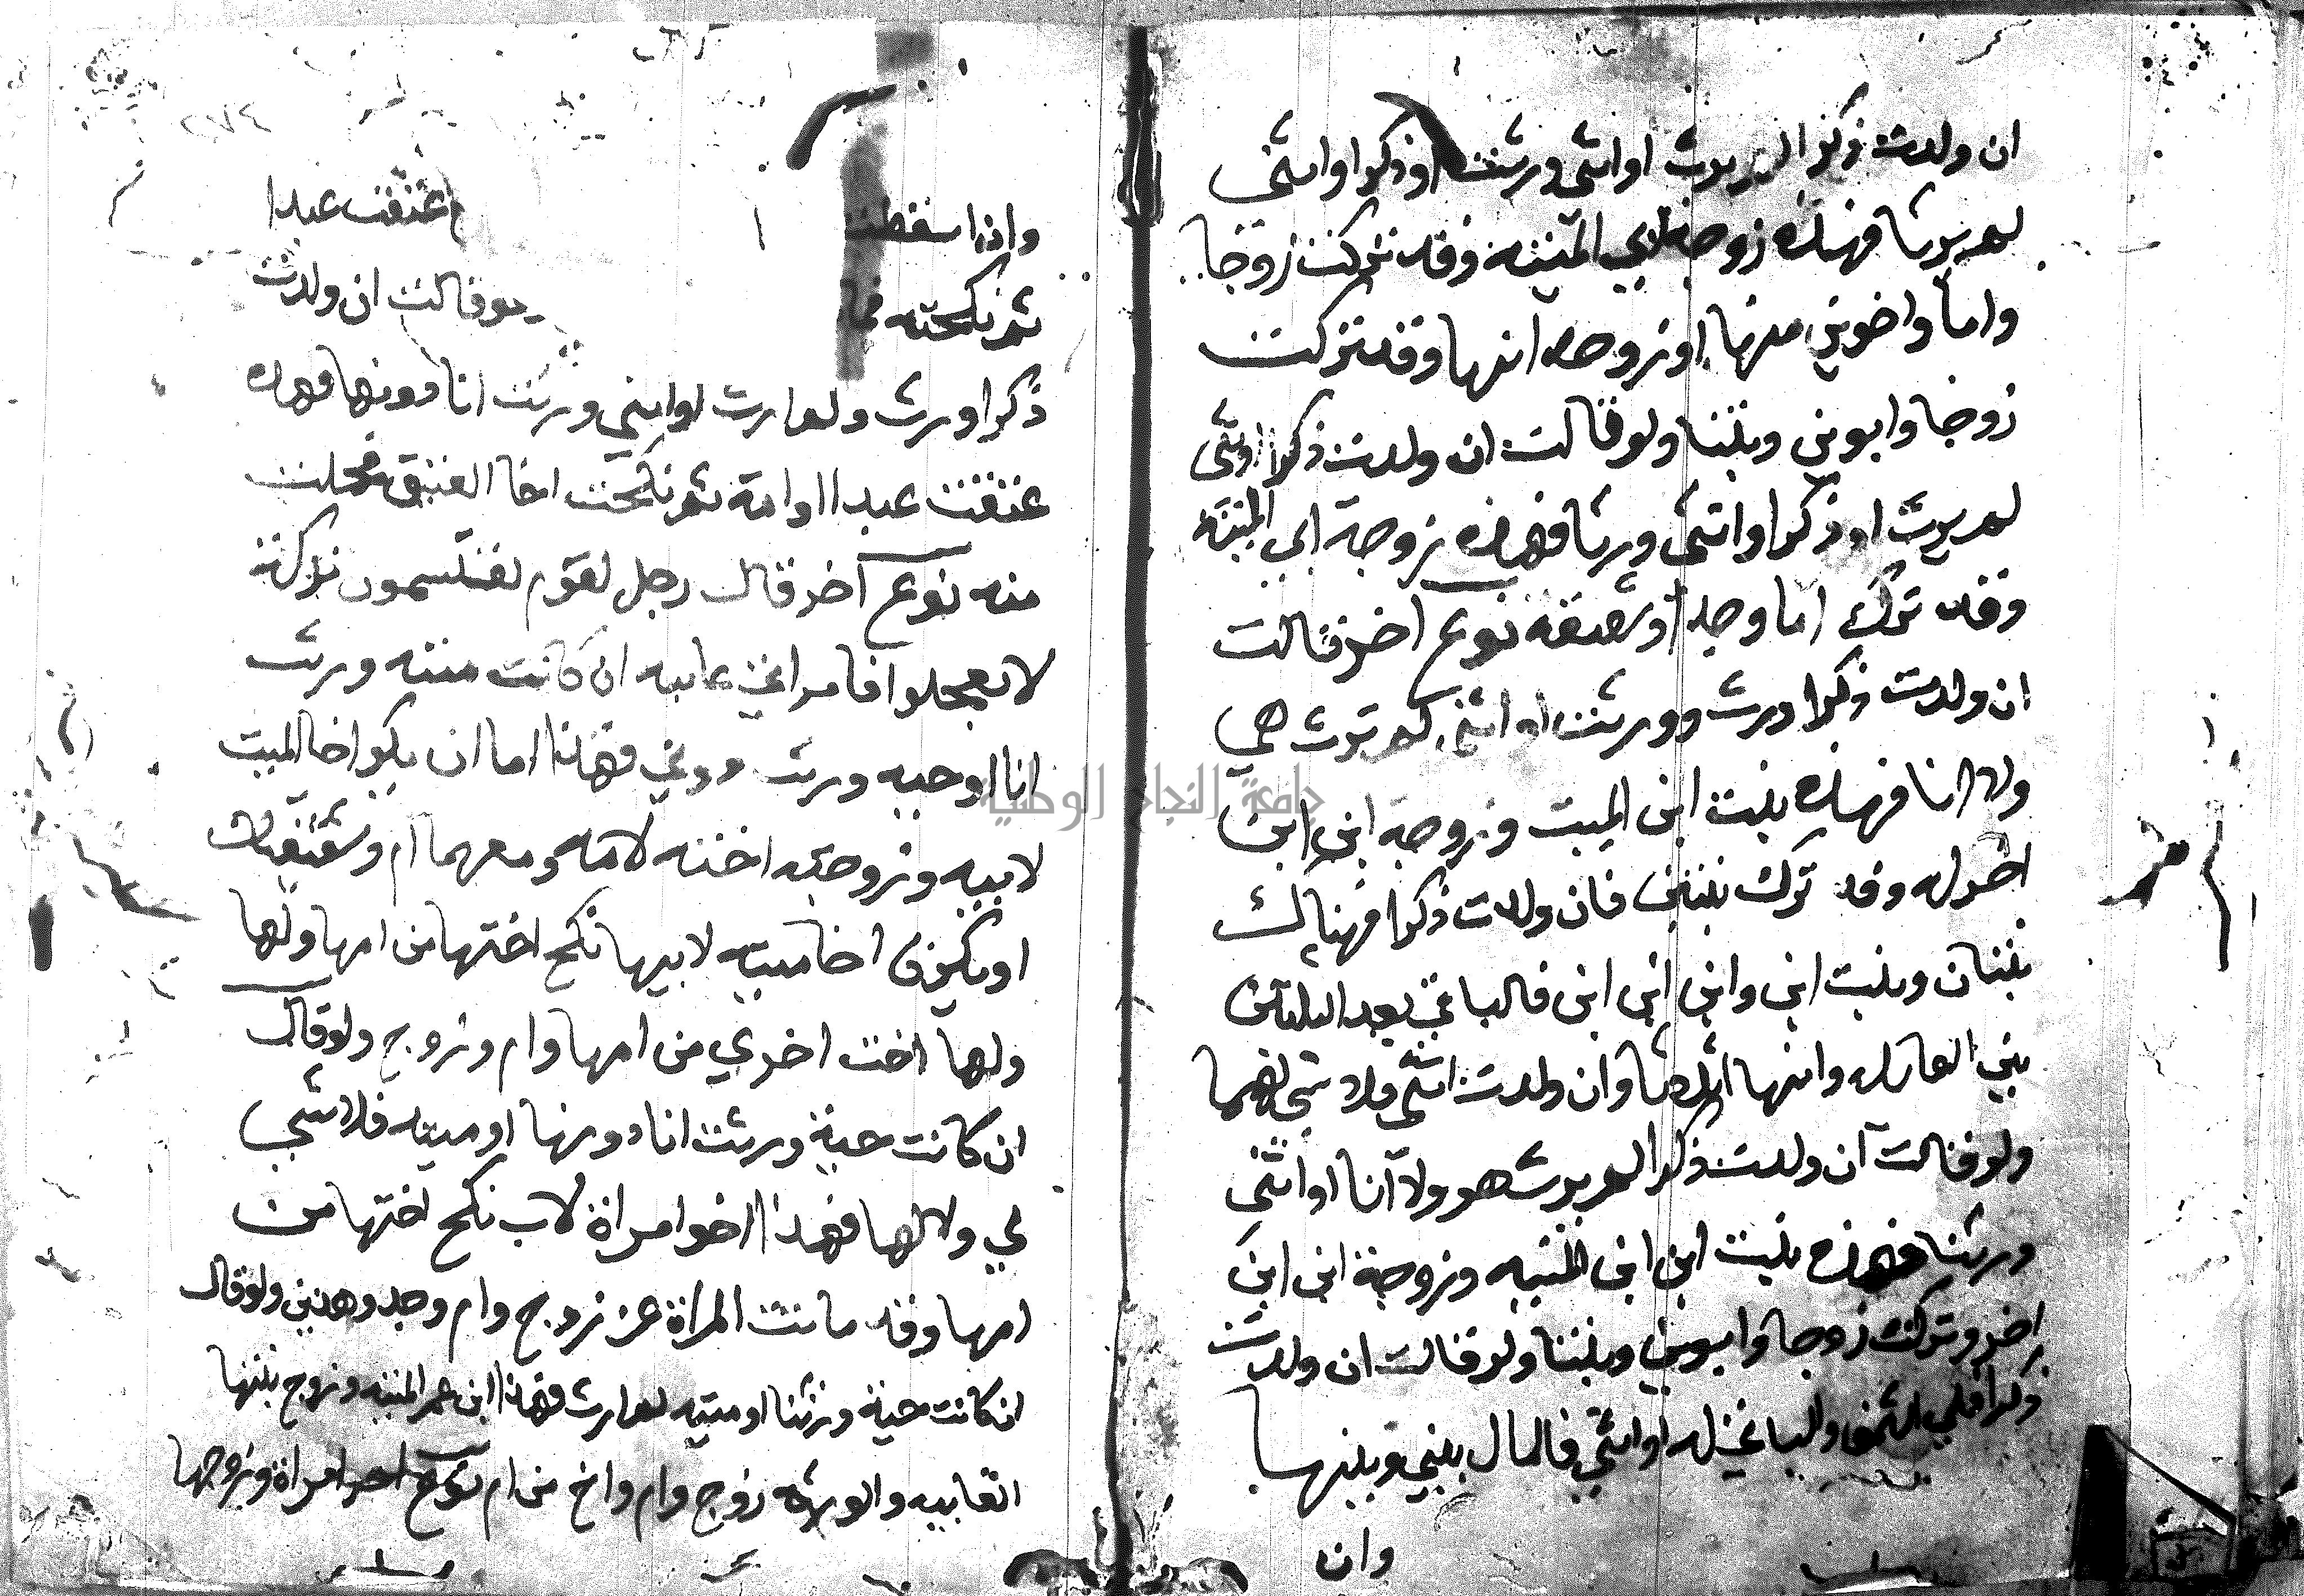 ان ولدت ذكرا لم يرث او انثى ورثت او ذكرا وانثى
لم يرثا فهذه زوجة ابي الميتة وقد تركت زوجا
واما واخوين منها او زوجة ابنها وقد تركت
زوجا وابوين وبنتا ولو قالت ان ولدت ذكرا او انثى
لم يرث او ذكرا وانثى ورثا فهذه زوجة ابي الميتة
وقد ترك اما وجدا وشقيقة نوع اخر قالت
ان ولدت ذكرا ورث وورثت او انثى لم ترث هي
ولا انا فهذه بنت ابن الميت وزوجة ابن ابن
اخر له وقد ترك بنتين فان ولدت ذكرا فهناك
بنتان وبنت ابن وابن ابن ابن فالباقي بعد الثلثين
بين العائلة وابنها اثلاثا وان ولدت انثى فلا شي لهما
ولو قالت ان ولدت ذكرا لم يرث هو ولا انا او انثى
ورثنا فهذه بنت ابن ابن الميتة وزوجة ابن ابن
اخر وتركت زوجا وابوين وبنتا ولو قالت ان ولدت
ذكرا فلي الثمن والباقي له او انثى فالمال بيني وبينها
وان
وان اسقطت اعتقت عبدا
ثم نكحته ولو قالت ان ولدت
ذكرا ورث ولم ارث او انثى ورثت انا دونها فهذه
عتقت عبدا او امة ثم نكحت اخا العتيق فحملت
منه نوع آخر قال رجل لقوم يقتسمون تركة
لا تعجلوا فامراتي غايبة ان كانت ميتة ورثت
انا او حية ورثت دوني فهذا اما ان يكو اخا الميت
لابيه وزوجته اخته لامه ومعهما ام وشقيقتان
او يكون اخا ميتة لابيها نكح اختها من امها ولها
ولها اخت اخري من امها وام وزوج ولو قال
ان كانت حية ورثت انا دونها او ميتة فلا شي
لي ولا لها فهذا اخو امراة لاب نكح اختها من
امها وقد ماتت المراة عن زوج وام وجد وهذين ولو قال
ان كانت حية ورثنا او ميتة لم ارث فهذا ابن عم الميتة وزوج بنتها
الغايبه والورثة زوج وام واخ من ام نوع اخر امراة وزوجها
جامعة النجاح الوطنية